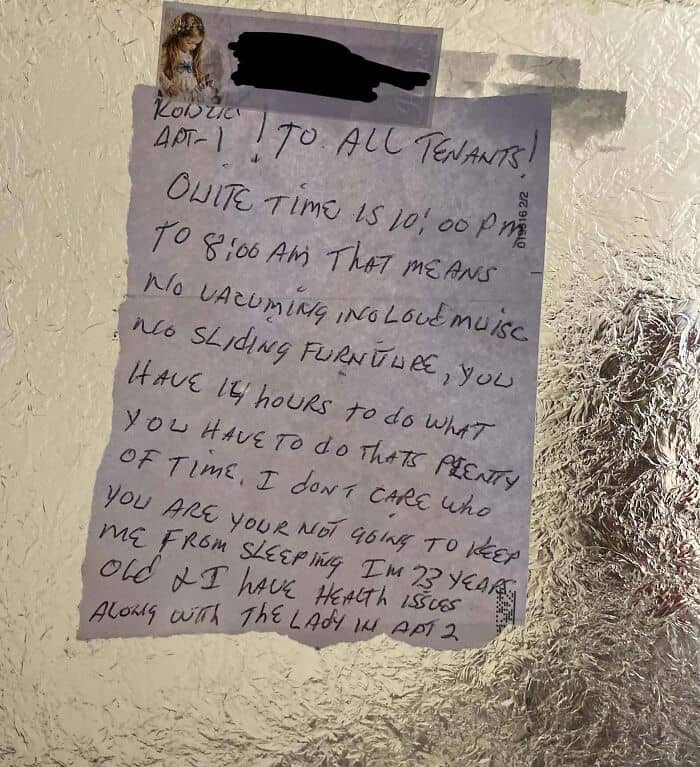 APT-1 ! TO ALL TENANTS!
QUITE TIME IS 10:00 PM
TO 8:00 AM THAT MEANS
NO VACUMING, NO LOUD MUISC
NO SLIDING FURNITURE, YOU
HAVE 14 HOURS TO DO WHAT
YOU HAVE TO DO THATS PLENTY
OF TIME. I DON'T CARE WHO
YOU ARE YOUR NOT GOING TO KEEP
ME FROM SLEEPING IM 73 YEARS
OLD & I HAVE HEALTH ISSUES
ALONG WITH THE LADY IN APT 2
2/2